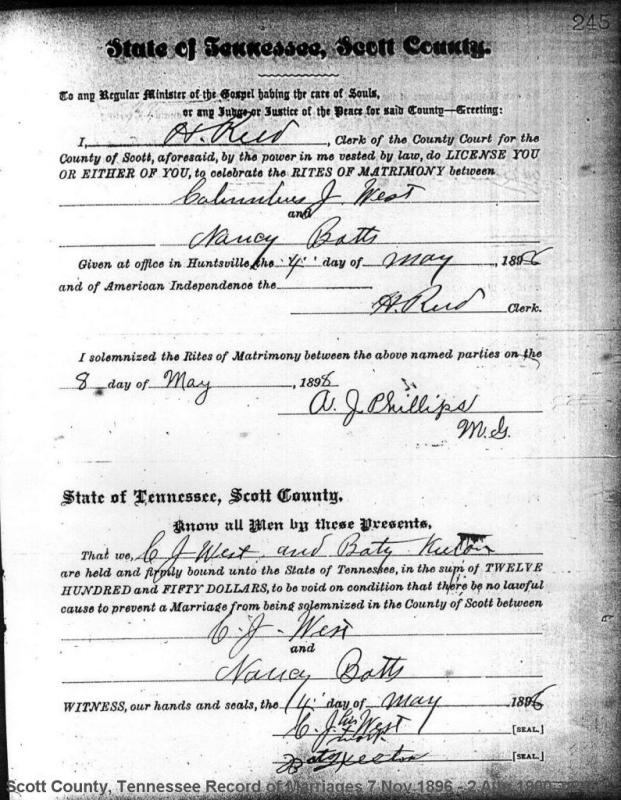 245
State of Tennessee, Scott County.
To any Regular Minister of the Gospel having the care of Souls,
or any Judge or Justice of the Peace for said County—Greeting:
I, H. Reed, Clerk of the County Court for the
County of Scott, aforesaid, by the power in me vested by law, do LICENSE YOU
OR EITHER OF YOU, to celebrate the RITES OF MATRIMONY between
Columbus J. West
and
Nancy Botts
Given at office in Huntsville, the 4 day of May, 1898
and of American Independence the
H. Reed Clerk.
I solemnized the Rites of Matrimony between the above named parties on the
8 day of May, 1898
A. J. Phillips
M.G.
State of Tennessee, Scott County.
Know all Men by these Presents,
That we, C J West and Baty
are held and firmly bound unto the State of Tennessee, in the sum of TWELVE
HUNDRED and FIFTY DOLLARS, to be void on condition that there be no lawful
cause to prevent a Marriage from being solemnized in the County of Scott between
C. J. West
and
Nancy Botts
WITNESS, our hands and seals, the 4 day of May 1898
C. J. his West [SEAL.]
mark
[SEAL.]
Scott County, Tennessee Record of Marriages 7 Nov 1896 - 2